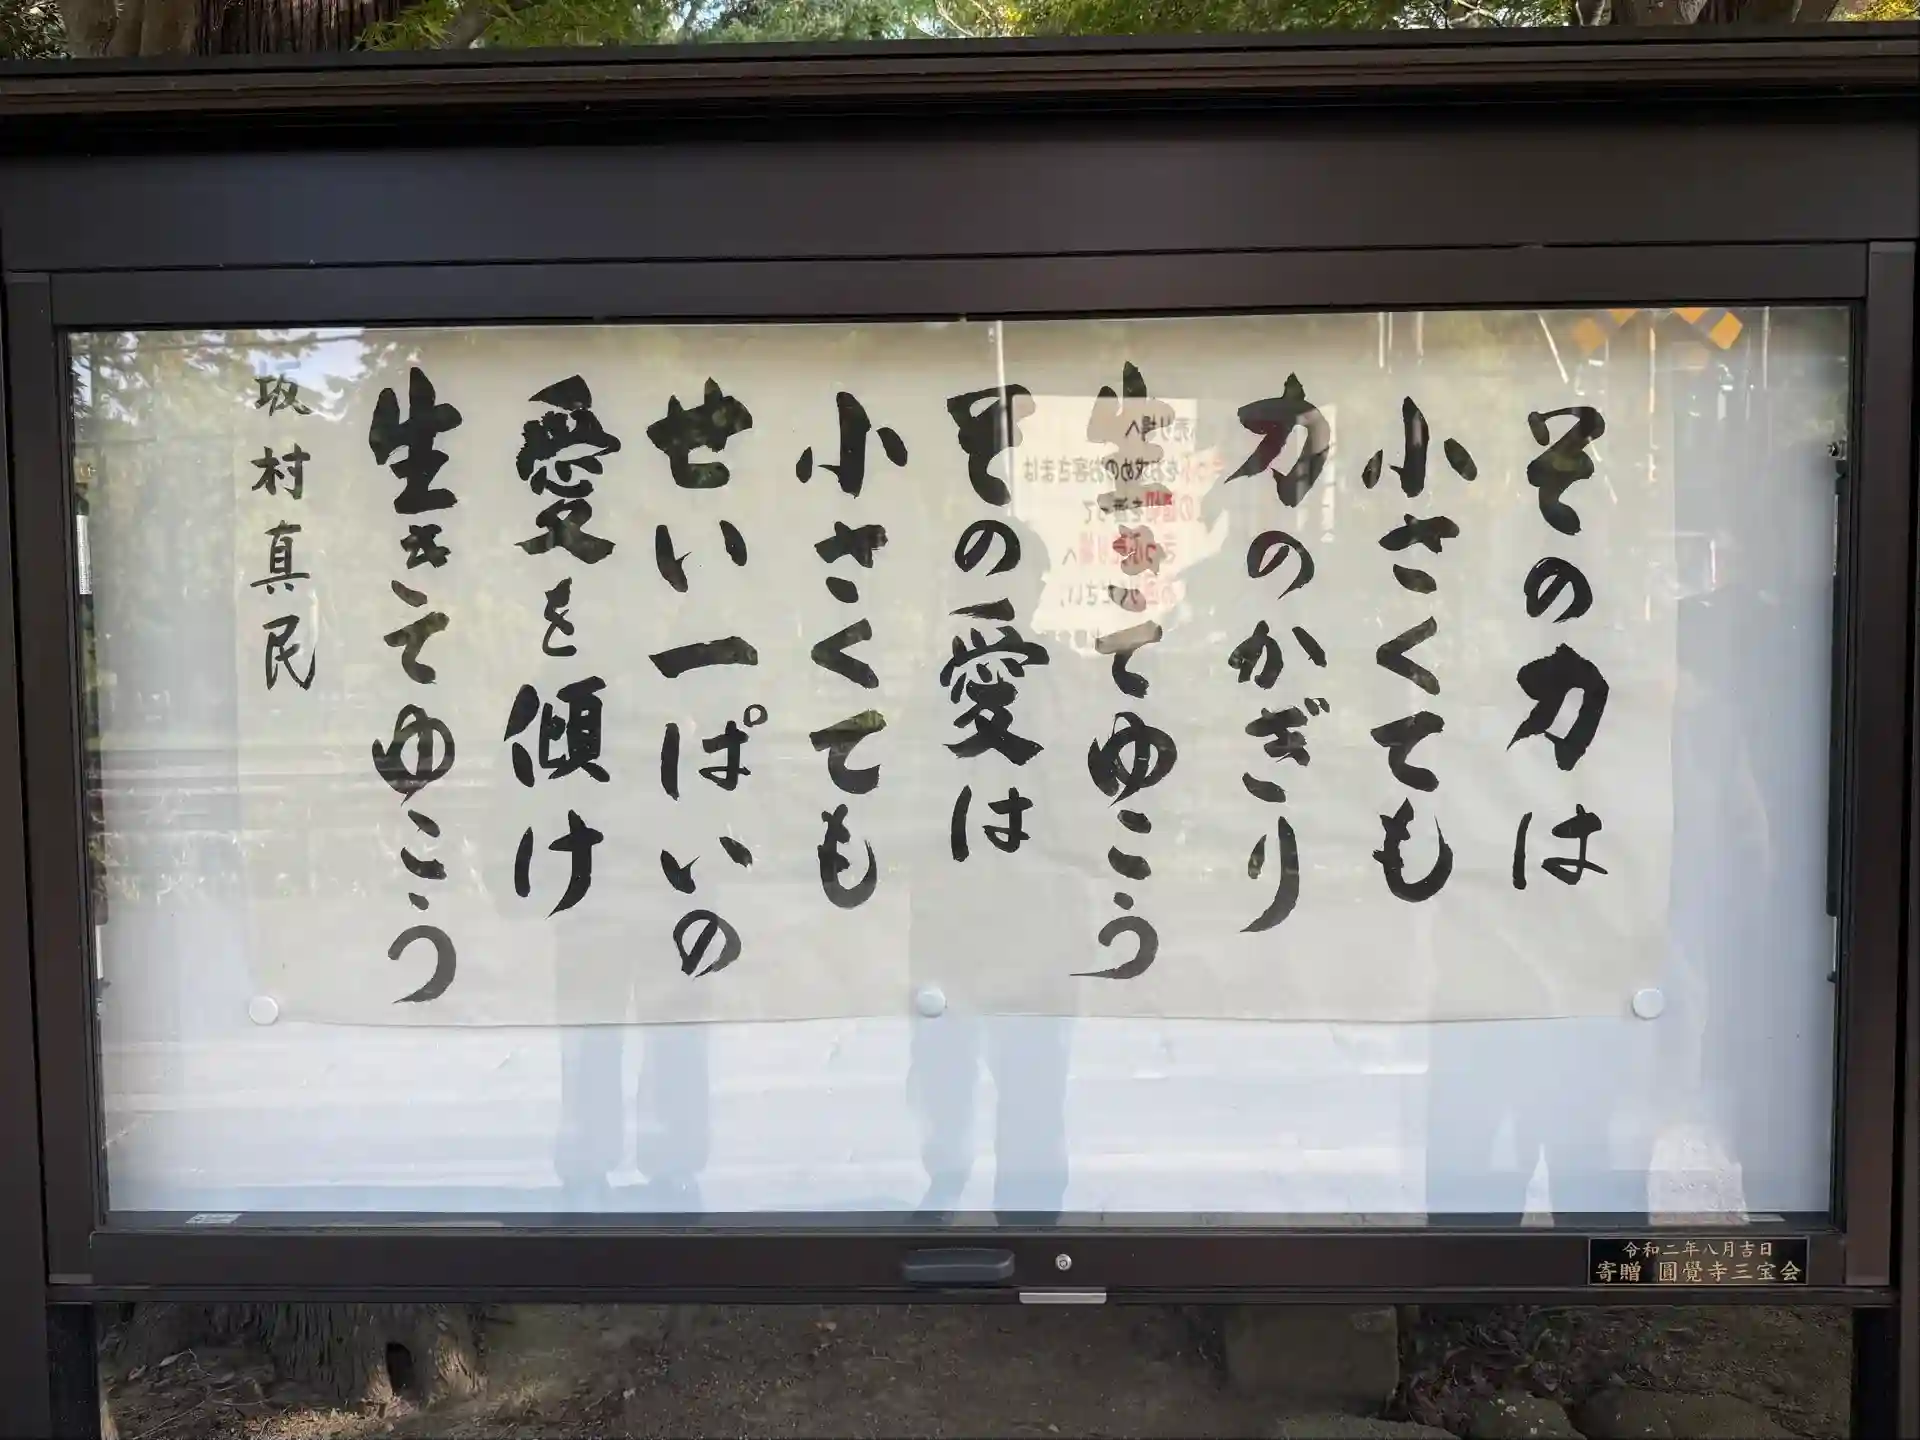 その力は
小さくても
力のかぎり
生きてゆこう
その愛は
小さくても
せい一ぱいの
愛を傾け
生きてゆこう
坂村真民
令和二年八月吉日
寄贈 圓覺寺三宝会